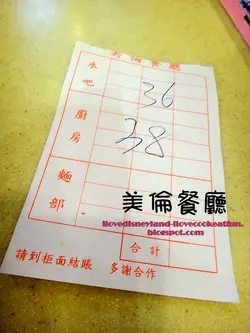 美倫餐廳
水吧
36
廚房
38
麵部
合計
請到柜面結賬 多謝合作
美倫餐廳
ilovedisneyland-ilovecookeathm.
blogspot.com